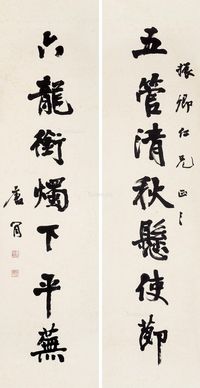 振卿仁兄正之
五管清秋懸使節
六龍銜燭下平蕪